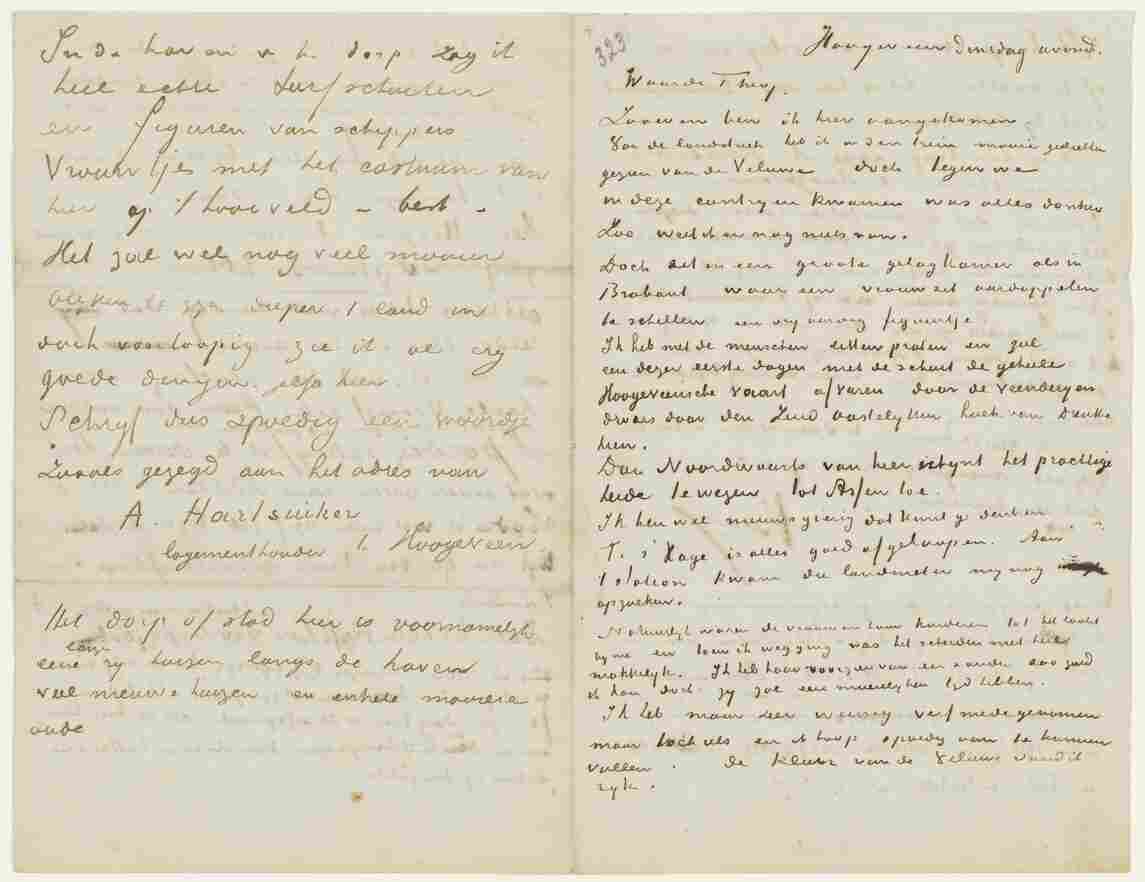 In de haven v h. dorp zag ik
heel echte turfschuiten
en figuren van schippers
Vrouwtjes met het costuum van
hier op 't hooiveld – best –
Het zal wel nog veel mooier
dieper 't land in
doch voorloopig zie ik al erg
goede dingen zelfs hier.
Schryf dus spoedig een woordje
Zooals gezegd aan het adres van
A. Hartsuiker
logementhouder te Hoogeveen.
Het dorp of stad hier is voornamelyk
eene lange ry huizen langs de haven
veel nieuwe huizen en enkele mooiere
oude
323
Hoogeveen Dinsdag avond.
Waarde Theo,
Zooeven ben ik hier aangekomen.
Van de landstreek heb ik in den trein mooie gedeelten
gezien van de Veluwe doch tegen we
in deze contryen kwamen was alles donker
Zoo weet ik er nog niets van.
Doch zit in een groote gelagkamer als in
Brabant waar een vrouw zit aardappelen
te schillen een vry aardig figuurtje.
Ik heb met de menschen zitten praten en zal
een dezer eerste dagen met de schuit de geheele
Hoogeveensche vaart afvaren door de veenderyen
dwars door den Zuid oostelyken hoek van Drenthe
heen.
Dan Noordwaarts van hier schynt het prachtige
heide te wezen tot Assen toe.
Ik ben wel nieuwsgierig dat kunt gy denken
T. s' Hage is alles goed afgeloopen. Aan
't station kwam die landmeter my nog
opzoeken.
Natuurlyk waren de vrouw en haar kinderen tot het laatst
by me en toen ik wegging was het scheiden niet heel
makkelyk. Ik heb haar voorzien van een en ander zoo goed
ik kon doch zy zal een moeielyken tyd hebben.
Ik heb maar zeer weinig verf medegenomen
maar toch iets en ik hoop spoedig aan te kunnen
vullen. De kleur van de Veluwe vond ik
ryk.